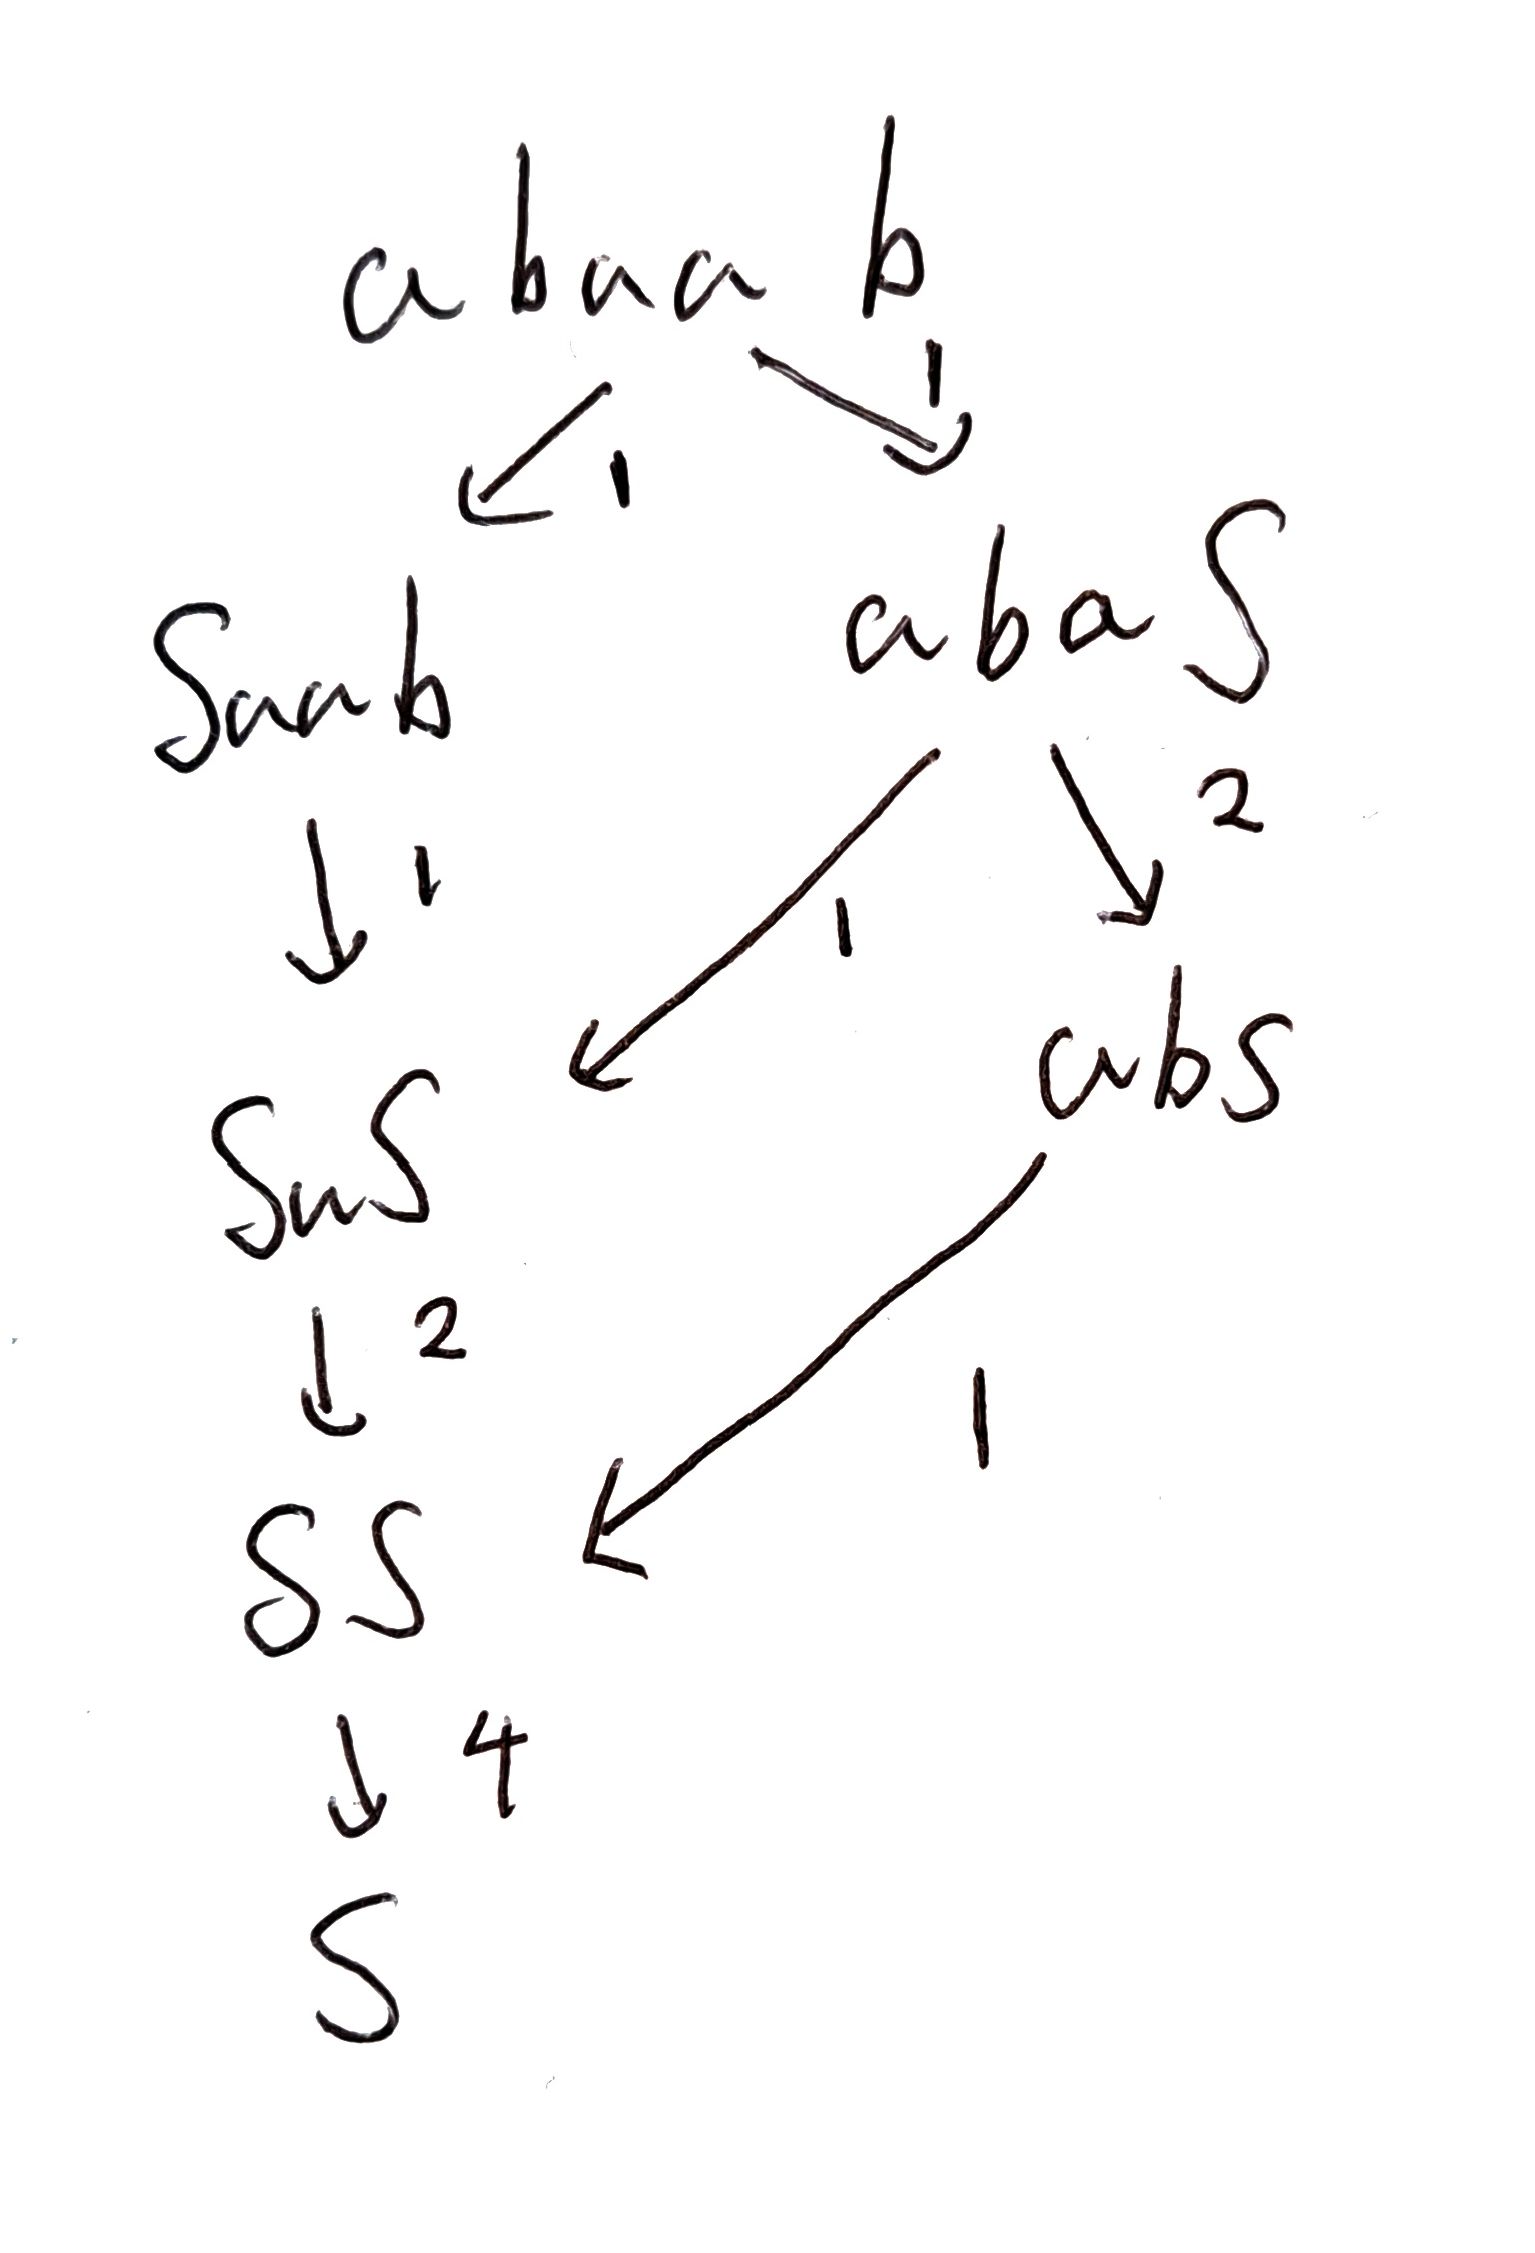 abaab
1
1
Saab
abaS
1
1
2
SaS
abS
2
1
SS
4
S